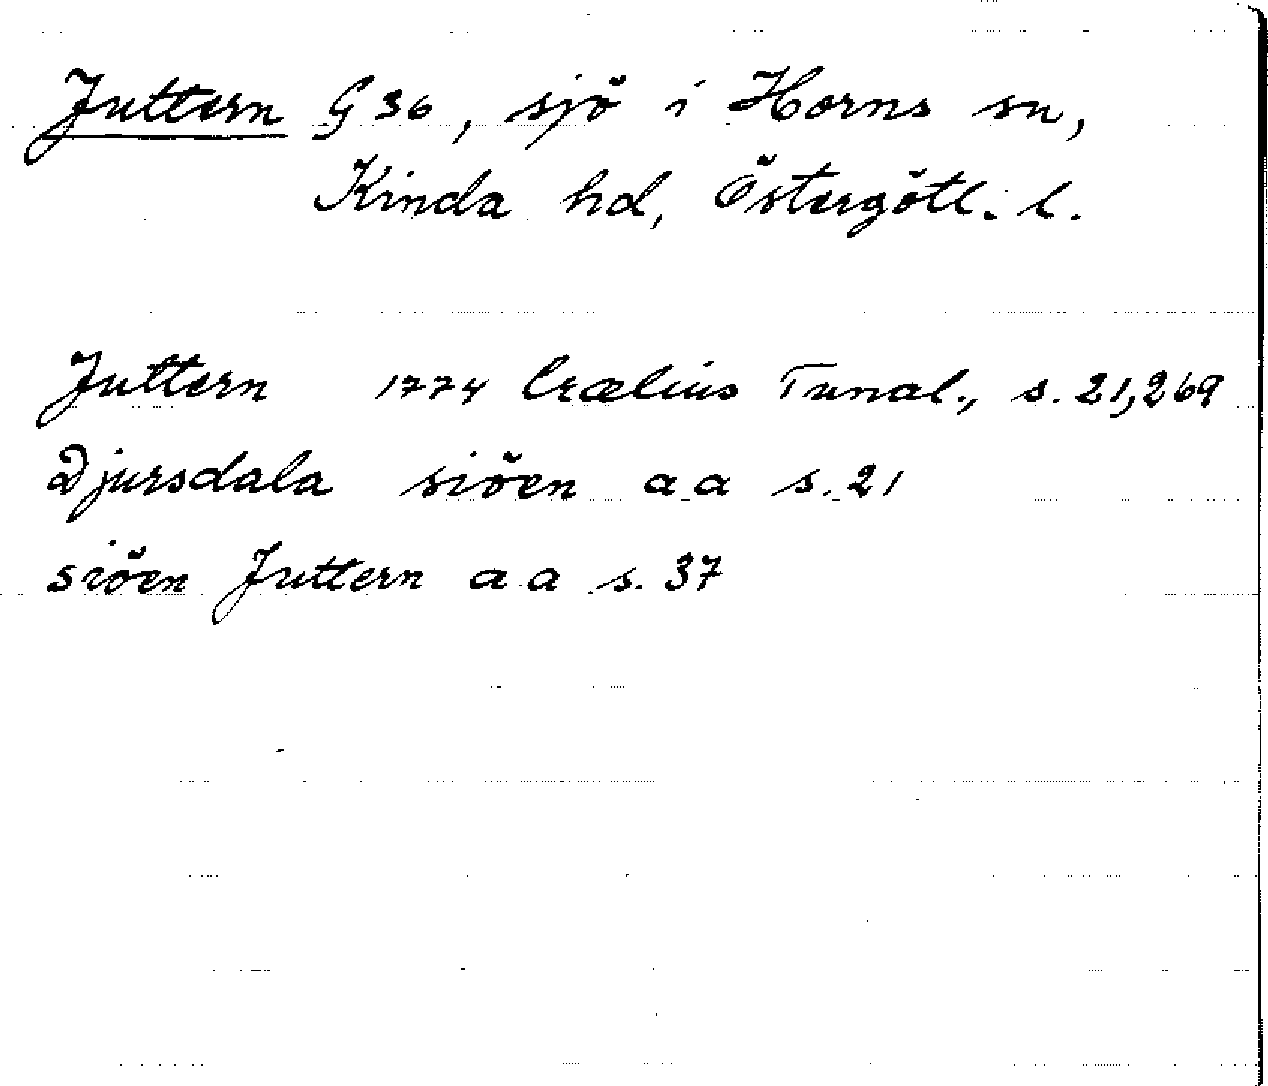 Juttern G 36, sjö i Horns sn,
Kinda hd, Östergötl. l.
Juttern 1774 Crælius Tunal., s. 21,269
Djursdala siöen a a s. 21
siöen Juttern a a s. 37